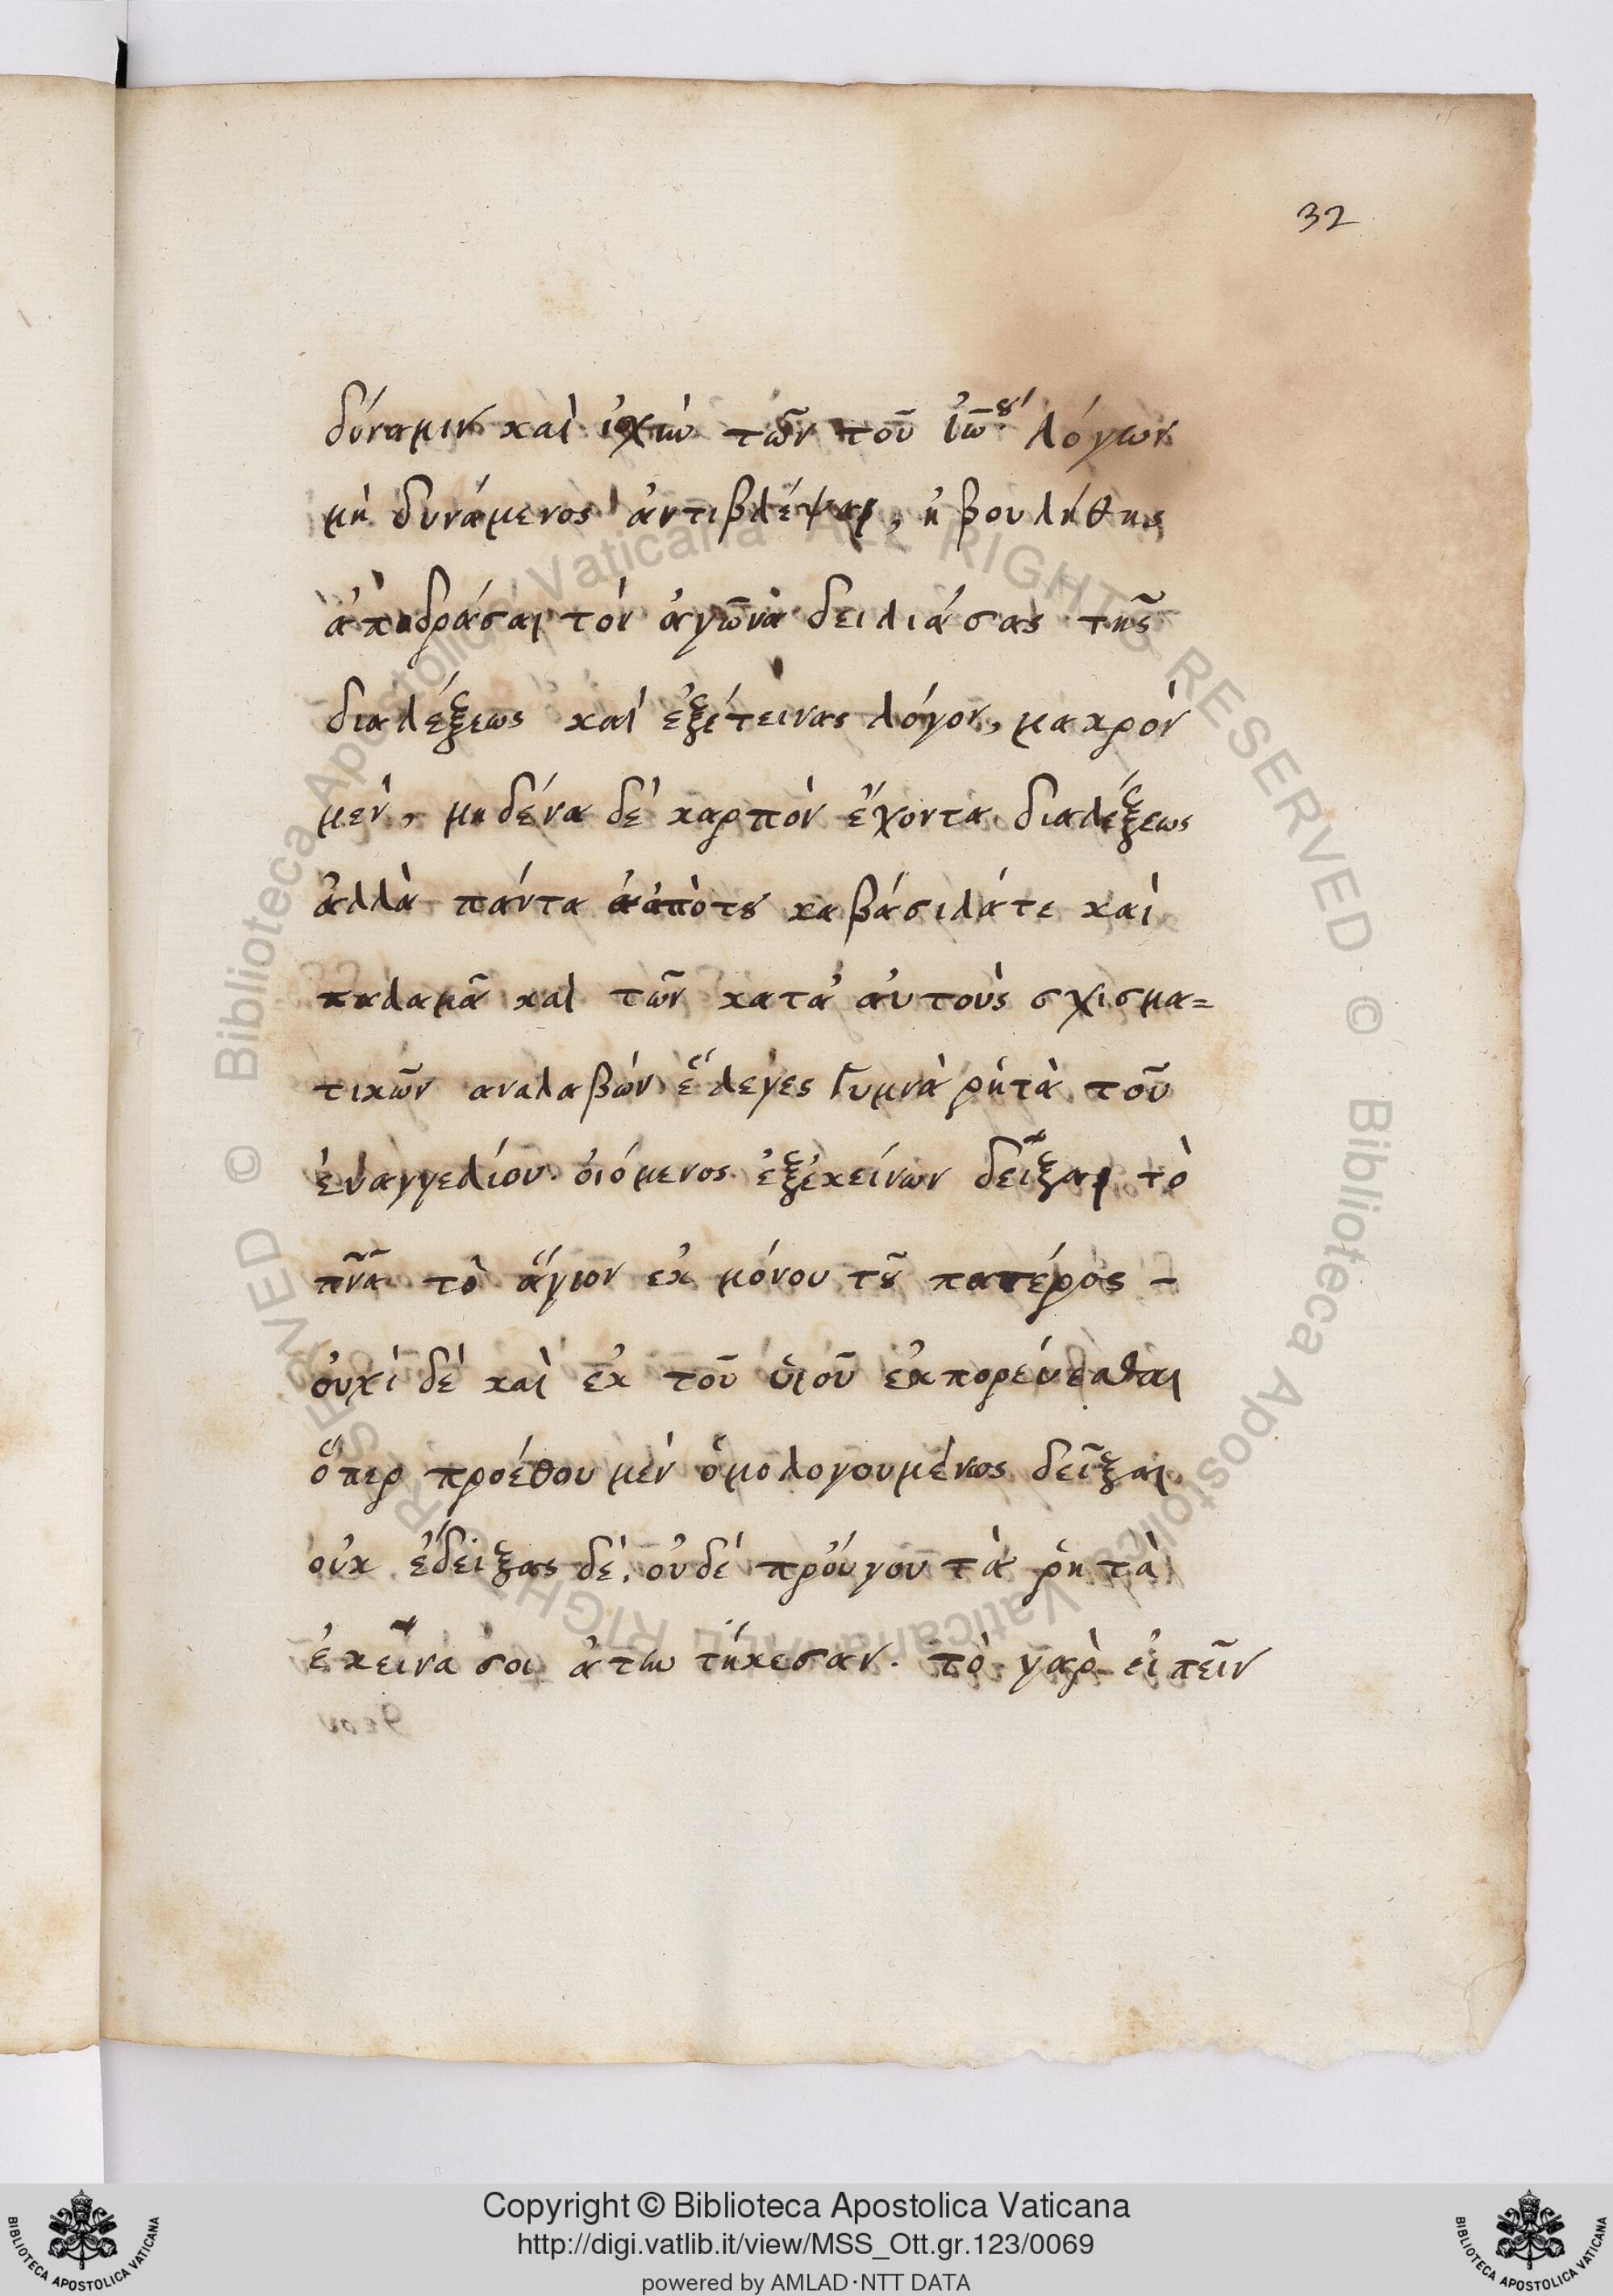 32
δύναμιν καὶ ἰσχὺν τῶν τοῦ ἰω̄ου λόγων
μὴ δυνάμενος ἀντιβλέψαι, ἠβουλήθης
ἀποδράσαι τὸν ἀγῶνα δειλιάσας τῆς
διαλέξεως καὶ ἐξέτεινας λόγον, μακρὸν
μὲν, μηδένα δὲ καρπὸν ἔχοντα διαλέξεως
ἀλλὰ πάντα ἀπὸ του καβάσιλά τε καὶ
παλαμᾶ καὶ τῶν κατ' αὐτοὺς σχισμα=
τικῶν αναλαβών ἔλεγες Γυμνὰ ῥητὰ τοῦ
ἐυαγγελίου. ὀιόμενος ἐξ ἐκείνων δεῖξαι τὸ
πν̄α τὸ ἅγιον ἐκ μόνου τοῦ πατέρος -
ὀυχὶ δὲ καὶ ἐκ τοῦ ὑιοῦ ἐκπορέυεσθαι
ὅπερ προέθου μὲν ὁμολογουμένως δεῖξαι
οὐκ ἔδειξας δὲ. οὐδὲ πρὀύγου τὰ ῥητὰ
ἐκεῖνα σοι ἀπῳτήκεσαν. τὸ γὰρ εἰπεῖν
Copyright © Biblioteca Apostolica Vaticana
http://digi.vatlib.it/view/MSS_Ott.gr.123/0069
powered by AMLAD·NTT DATA
BIBLIOTECA APOSTOLICA VATICANA
BIBLIOTECA APOSTOLICA VATICANA
© Biblioteca Apostolica Vaticana ALL RIGHTS RESERVED
© Biblioteca Apostolica Vaticana ALL RIGHTS RESERVED